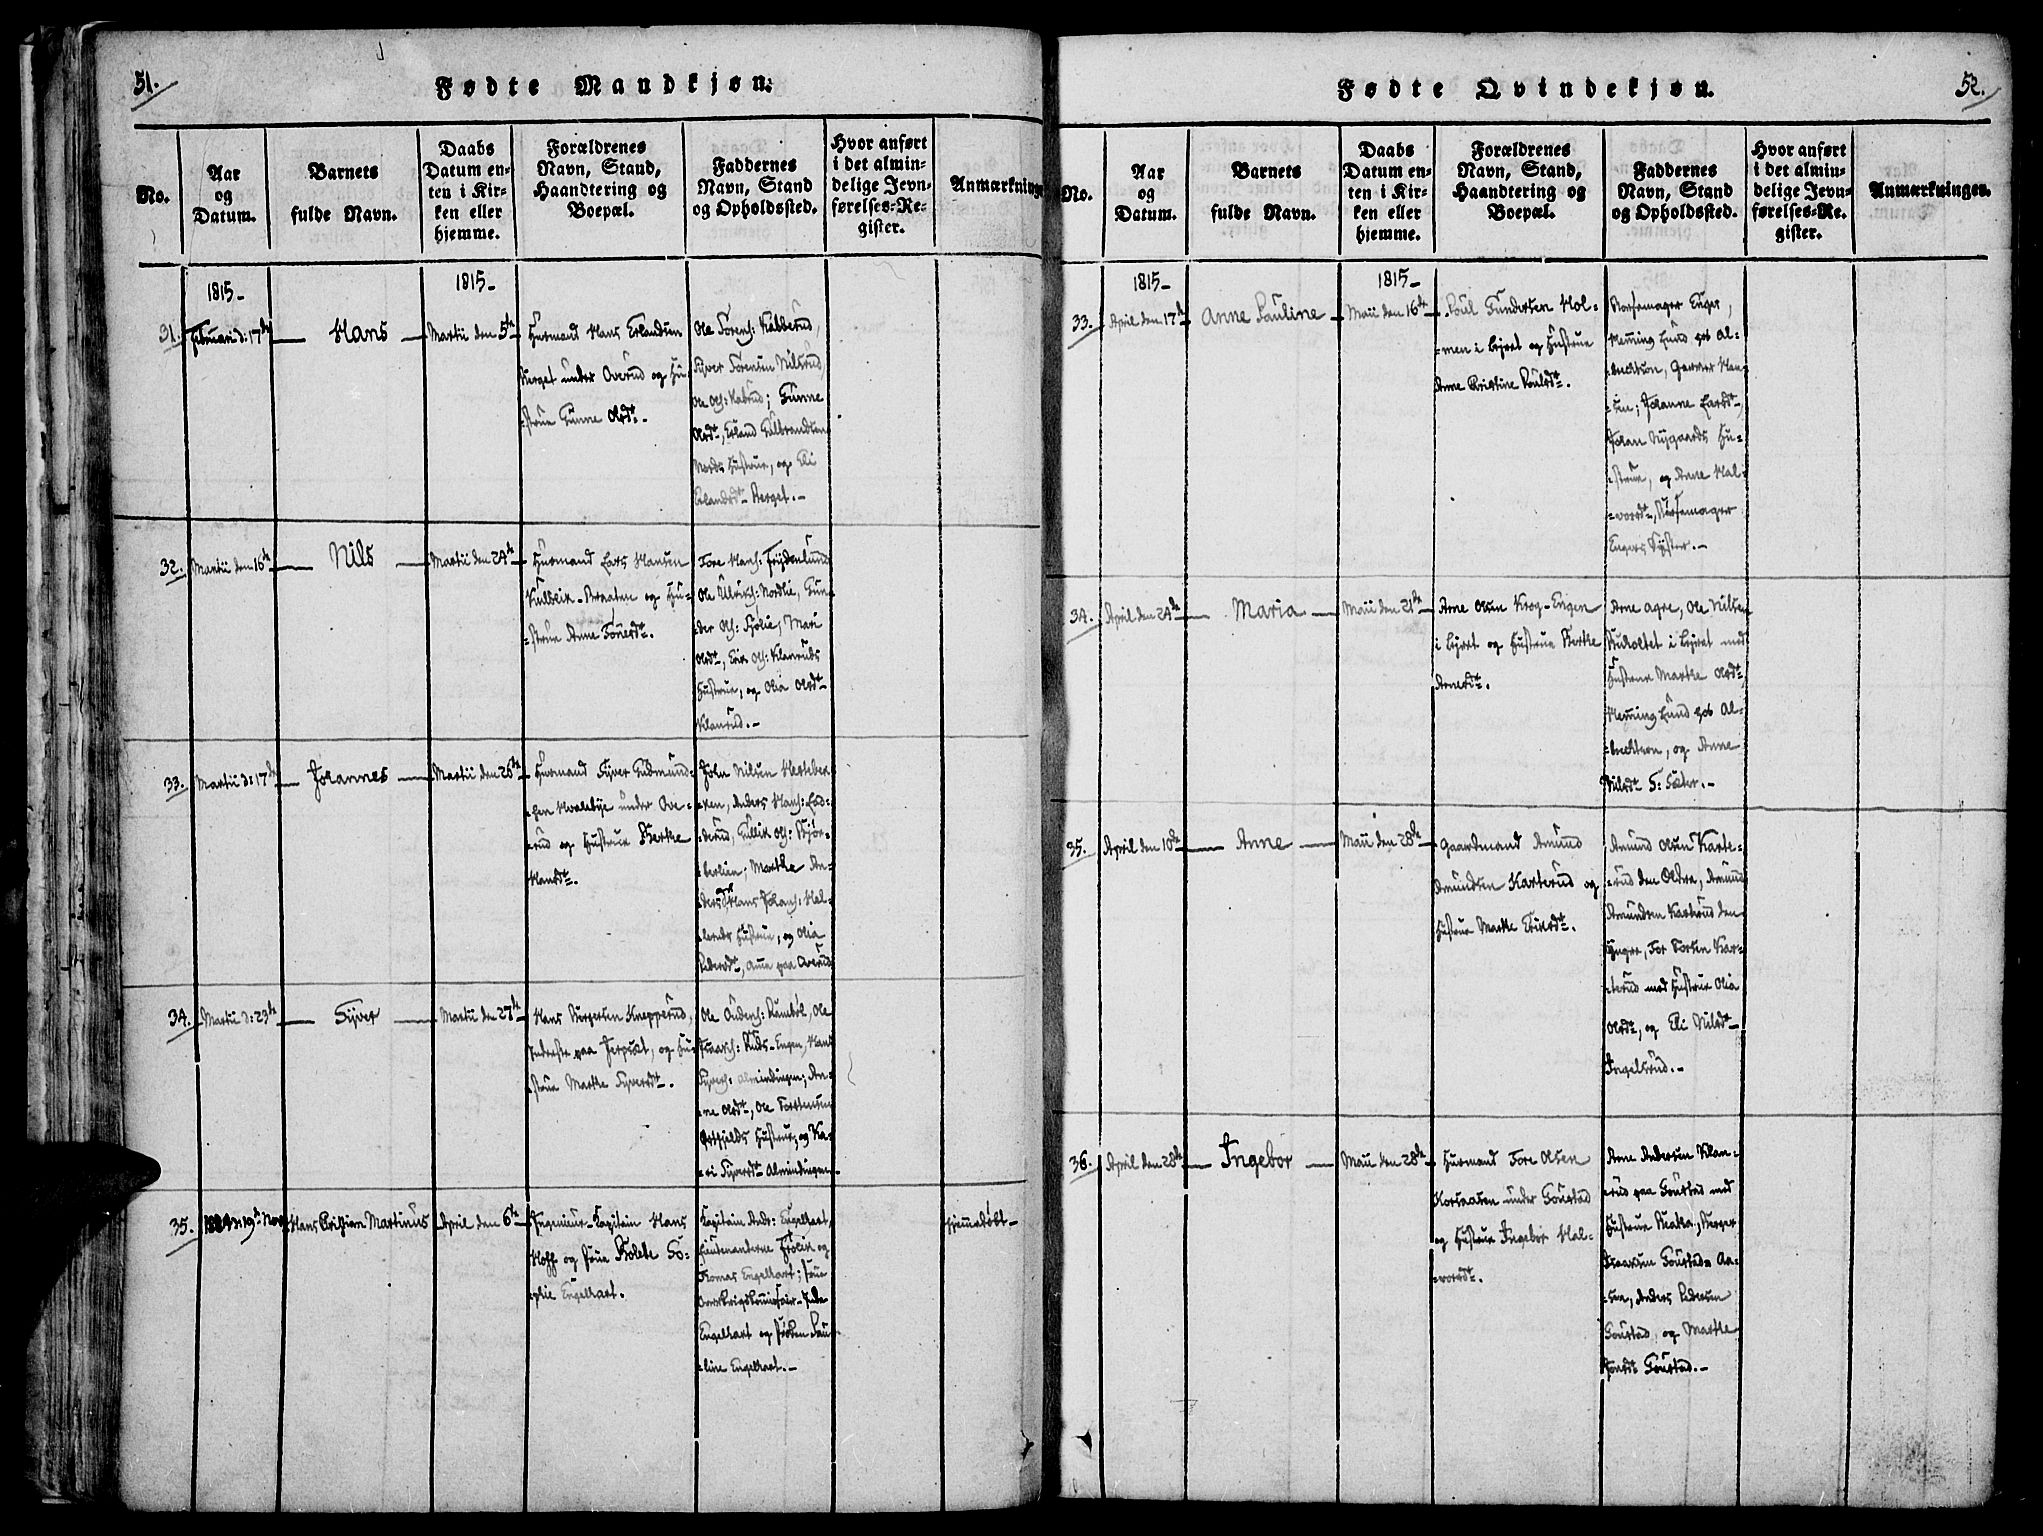 51.
Fødte Mandkjøn.
No.
Aar
og
Datum.
Barnets
fulde Navn.
Daabs
Datum en-
ten i Kir-
ken eller
hjemme.
Forældrenes
Navn, Stand,
Haandtering og
Boepæl.
Faddernes
Navn, Stand
og Opholdssted.
Hvor anført
i det almin-
delige Jevn-
førelses-Re-
gister.
Anmærkninge
1815-
1815-
31.
Februari d: 17de
Hans
Martii den 5te
Huusmand Hans Erlandsen
Berget under Overud og Hu-
-strue Gunne Olsdt.
Ole Torens: Kabberud,
Syver Torensen Nilsrud,
Ole Ols: Kabrud; Gunne
Olsdt, Erland Gulbrandsen
Hustrue, og Eli
Erlandsdt Berget.-
32.
Martii den 16de
Nils
Martii den 24de
Huusmand Lars Hansen
Kulbeik-Braaten og Hu-
-strue Anne Toresdt.
Tore Hans: Frydenlund
Ole Ulriks: Nordlie, Gun-
-der Ols: Sjølie, Mari
Olsdt, Erik Ols: Klanruds
Hustrue, og Olia Olsdt
Klanrud.-
33.
Martii d: 17de
Johannes
Martii den 26de
Huusmand Syver Gudmund-
-sen Hvalebye under Ove-
-rud og Hustrue Berthe
Hansdt.
John Nilsen Hesteber-
-ken, Anders Hans: Lad-
-derud, Gullik Ols: Bjør-
-berlien, Marthe An-
-dersdt Hans Johans: Hal-
Hustrue, og Olia
Pedersdt, Amme paa Overud
34.
Martii d: 23de
Syver
Martii den 27de
Hans Børgersen Knepperud,
Inderste paa Jerpset, og Hu-
-strue Marthe Syversdt.
Ole Audens: Rambøl, Ole
Isaachs: Ruds-Engen, Hans
Syvers: Almindingen; An-
-ne Olsdt, Ole Torstensen
Østfjelds Hustrue, og Ka-
-ri Syversdt Almindingen
35.
1814 d: 19de Nov
Hans Christian Martinus
April den 6te
Ingenieur-Kapitain Hans
Hoff og Frue Bolete So-
-phie Engelhart.
Kapitain Andr: Engelhart,
Lieutenanterne Frølich og
Thomas Engelhart; Frue
Engelhart og Frøken Pau-
-line Engelhart.-
Hjemmedøbt-
52.
Fødte Qvindekjøn.
No.
Aar
og
Datum.
Barnets
fulde Navn.
Daabs
Datum en-
ten i Kir-
ken eller
hjemme.
Forældrenes
Navn, Stand,
Haandtering og
Boepæl.
Faddernes
Navn, Stand
og Opholdssted.
Hvor anført
i det almin-
delige Jevn-
førelses-Re-
gister.
Anmærkninger.
1815-
1815-
33.
April den 17de
Anne Pauline
Maii den 16de
Poul Gundersen Hol-
-men i Byret og Hustrue
Anne Christine Poulsdt.
Enger,
Henning Lund, Jacob Al-
-brechtson, Garver Han-
-sen; Johanne Larsdt,
Johan Nygaards Hu-
-strue, og Anne Hal-
-vorsdt,
Engers Syster.-
34.
April den 24de
Maria
Maii den 21de
Arne Olsen Krog-Engen
i Byret og Hustrue Berthe
Arnesdt.
Arne Agre, Ole Nilsen
Buholtet i Byret med
Hustrue Marthe Olsdt,
Henning Lund, Jacob Al-
-brechtson, og Anne
Nilsdt S: Sæter.-
35.
April den 10de
Anne
Maii den 28de
Gaardmand Amund
Amundsen Karterud og
Hustrue Marthe Eriksdt.
Amund Olsen Karte-
-rud den Ældre, Amund
Amundsen Karterud den
Yngre, Tor Torsen Kar-
-terud med Hustrue Olia
Olsdt, og Eli Nilsdt
Ingelsrud.-
36.
April den 28de
Ingebor
Maii den 28de
Huusmand Tore Olsen
Korsaasen under Goustad
og Hustrue Ingebor Hal-
-vorsdt.
Arne Andersen Klan-
-rud paa Goustad med
Hustrue Beatha, Børger
Isaachsen Goustads Aa-
-sen, Anders Pedersen
Goustad, og Marthe
Jonsdt Goustad.-